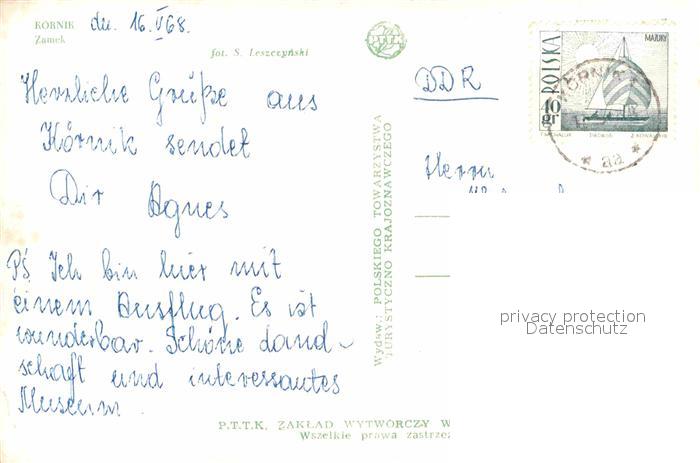 KÓRNIK dn. 16.V68.
Zamek
fot. S. Leszczyński
PTTK
Herzliche Grüße aus
Kórnik sendet
Dir Agnes
PS Ich bin hier mit
einem Ausflug. Es ist
wunderbar. Schöne Land-
schaft und interessantes
Museum
Wydaw.: POLSKIEGO TOWARZYSTWA
TURYSTYCZNO KRAJOZNAWCZEGO
P.T.T.K. ZAKŁAD WYTWÓRCZY W
Wszelkie prawa zastrze
DDR
Herrn
POLSKA
MAZURY
10 gr
KÓRNIK
* aa *
privacy protection
Datenschutz